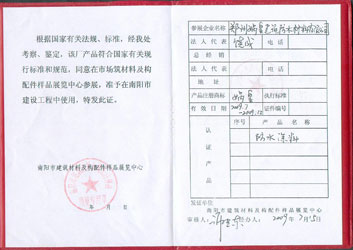 根据国家有关法规、标准,经我处
考察、鉴定,该厂产品符合国家有关现
行标准和规范,同意在市场筑材料及构
配件样品展览中心参展,准予在南阳市
建设工程中使用,特发此证。
南阳市建筑材料及构配件样品展览中心
年 月 日
参展企业名称
法人代表 电话
总经销
法人代表 电话
地址
产品注册商标 执行标准
有效日期 证件编号
认证产品
防水涂料
发证单位
南阳市建筑材料及构配件样品展览中心
经办人: 2009年7月15日